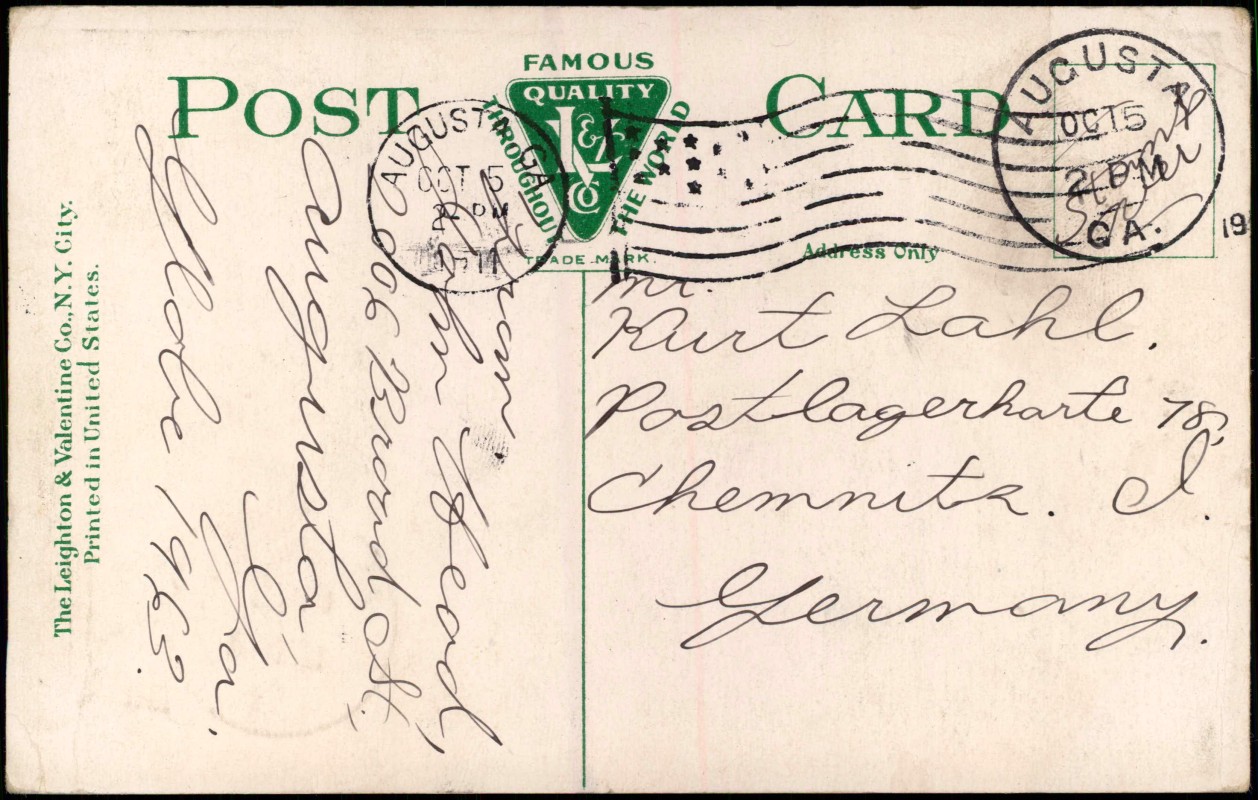 FAMOUS
QUALITY
THROUGHOUT
THE WORLD
V
L & Co
TRADE MARK.
POST CARD
Address Only
AUGUSTA, GA.
OCT 5
2 PM
1911
AUGUSTA
OCT 5
2 PM
GA.
19
Stamp
other
The Leighton & Valentine Co., N.Y. City.
Printed in United States.
from
John Head,
606 Broad St.,
Augusta
Ga.
Globe 1963.
Mr.
Kurt Lahl.
Postlagerkarte 78,
Chemnitz. I.
Germany.